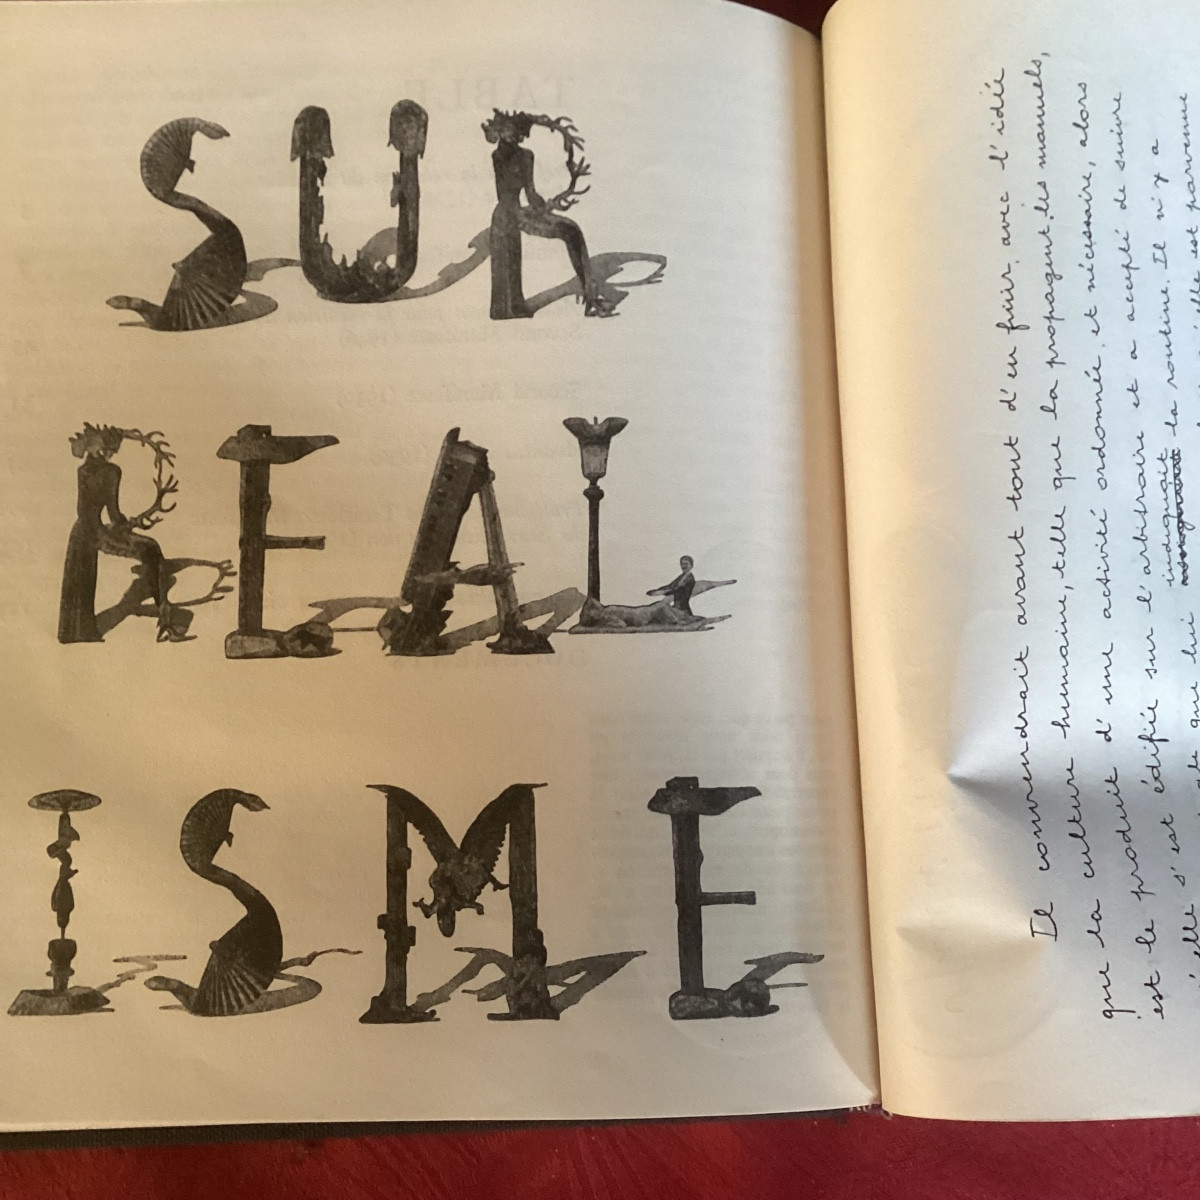 SUR
REAL
ISME
Il conviendrait avant tout d'en finir avec l'idée
que la culture humaine, telle que la propagent les manuels,
est le produit d'une activité ordonnée et nécessaire, alors
qu'elle s'est édifiée sur l'arbitraire et a accepté de suivre
que lui indiquait la routine. Il n'y a
elle est parvenue